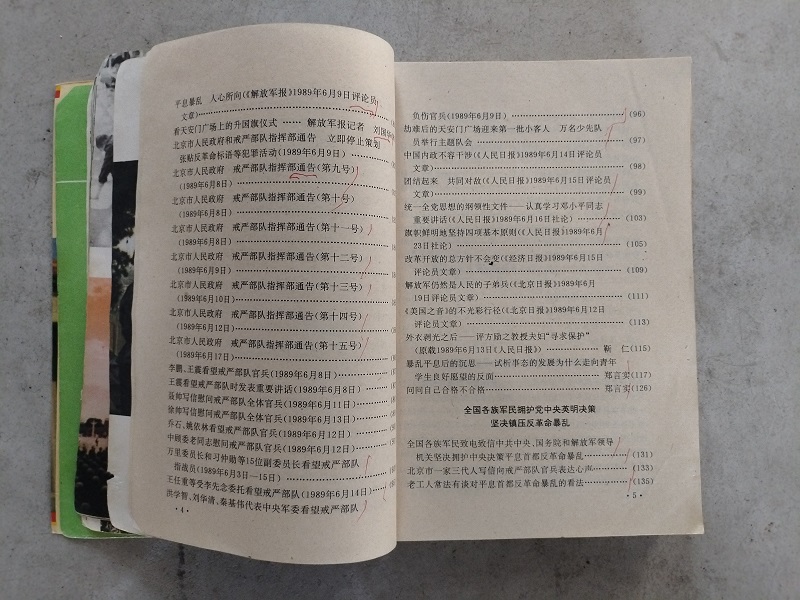 平息暴乱　人心所向(《解放军报》1989年6月9日评论员
文章)
看天安门广场上的升国旗仪式 …… 解放军报记者　刘国
北京市人民政府和戒严部队指挥部通告　立即停止策划
张贴反革命标语等犯罪活动(1989年6月9日)
北京市人民政府　戒严部队指挥部通告(第九号)
(1989年6月8日)
北京市人民政府　戒严部队指挥部通告(第十号)
(1989年6月8日)
北京市人民政府　戒严部队指挥部通告(第十一号)
(1989年6月8日)
北京市人民政府　戒严部队指挥部通告(第十二号)
(1989年6月9日)
北京市人民政府　戒严部队指挥部通告(第十三号)
(1989年6月10日)
北京市人民政府　戒严部队指挥部通告(第十四号)
(1989年6月12日)
北京市人民政府　戒严部队指挥部通告(第十五号)
(1989年6月17日)
李鹏、王震看望戒严部队官兵(1989年6月8日)
王震看望戒严部队时发表重要讲话(1989年6月8日)
聂帅写信慰问戒严部队全体官兵(1989年6月11日)
徐帅写信慰问戒严部队全体官兵(1989年6月13日)
乔石、姚依林看望戒严部队官兵(1989年6月12日)
中顾委老同志慰问戒严部队官兵(1989年6月12日)
万里委员长和习仲勋等15位副委员长看望戒严部队
指战员(1989年6月3日—15日)
王任重等受李先念委托看望戒严部队(1989年6月14日)
洪学智、刘华清、秦基伟代表中央军委看望戒严部队
· 4 ·
负伤官兵(1989年6月9日) (96)
劫难后的天安门广场迎来第一批小客人　万名少先队
员举行主题队会 (97)
中国内政不容干涉(《人民日报》1989年6月14日评论员
文章) (98)
团结起来　共同对敌(《人民日报》1989年6月15日评论员
文章) (99)
统一全党思想的纲领性文件——认真学习邓小平同志
重要讲话(《人民日报》1989年6月16日社论) (103)
旗帜鲜明地坚持四项基本原则(《人民日报》1989年6月
23日社论) (105)
改革开放的总方针不会变(《经济日报》1989年6月15日
评论员文章) (109)
解放军仍然是人民的子弟兵(《北京日报》1989年6月
19日评论员文章) (111)
《美国之音》的不光彩行径(《北京日报》1989年6月12日
评论员文章) (113)
外衣剥光之后——评方励之教授夫妇“寻求保护”
(原载1989年6月13日《人民日报》) 靳　仁(115)
暴乱平息后的沉思——试析事态的发展为什么走向青年
学生良好愿望的反面 郑言实(117)
问问自己合格不合格 郑言实(126)
全国各族军民拥护党中央英明决策
坚决镇压反革命暴乱
全国各族军民致电致信中共中央、国务院和解放军领导
机关坚决拥护中央决策平息首都反革命暴乱 (131)
北京市一家三代人写信向戒严部队官兵表达心声 (133)
老工人常法有谈对平息首都反革命暴乱的看法 (135)
· 5 ·